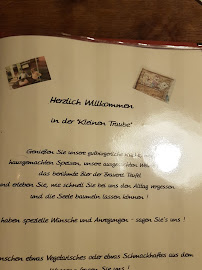 Herzlich Willkommen
in der "Kleinen Traube"
Genießen Sie unsere gutbürgerliche
hausgemachten Speisen, unsere ausgesuchten
das berühmte Bier der Brauerei
und erleben Sie, wie schnell Sie bei uns den Alltag vergessen
und die Seele baumeln lassen können !
haben spezielle Wünsche und Anregungen - sagen Sie's uns !
wünschen etwas Vegetarisches oder etwas Schmackhaftes aus dem
Sie uns !